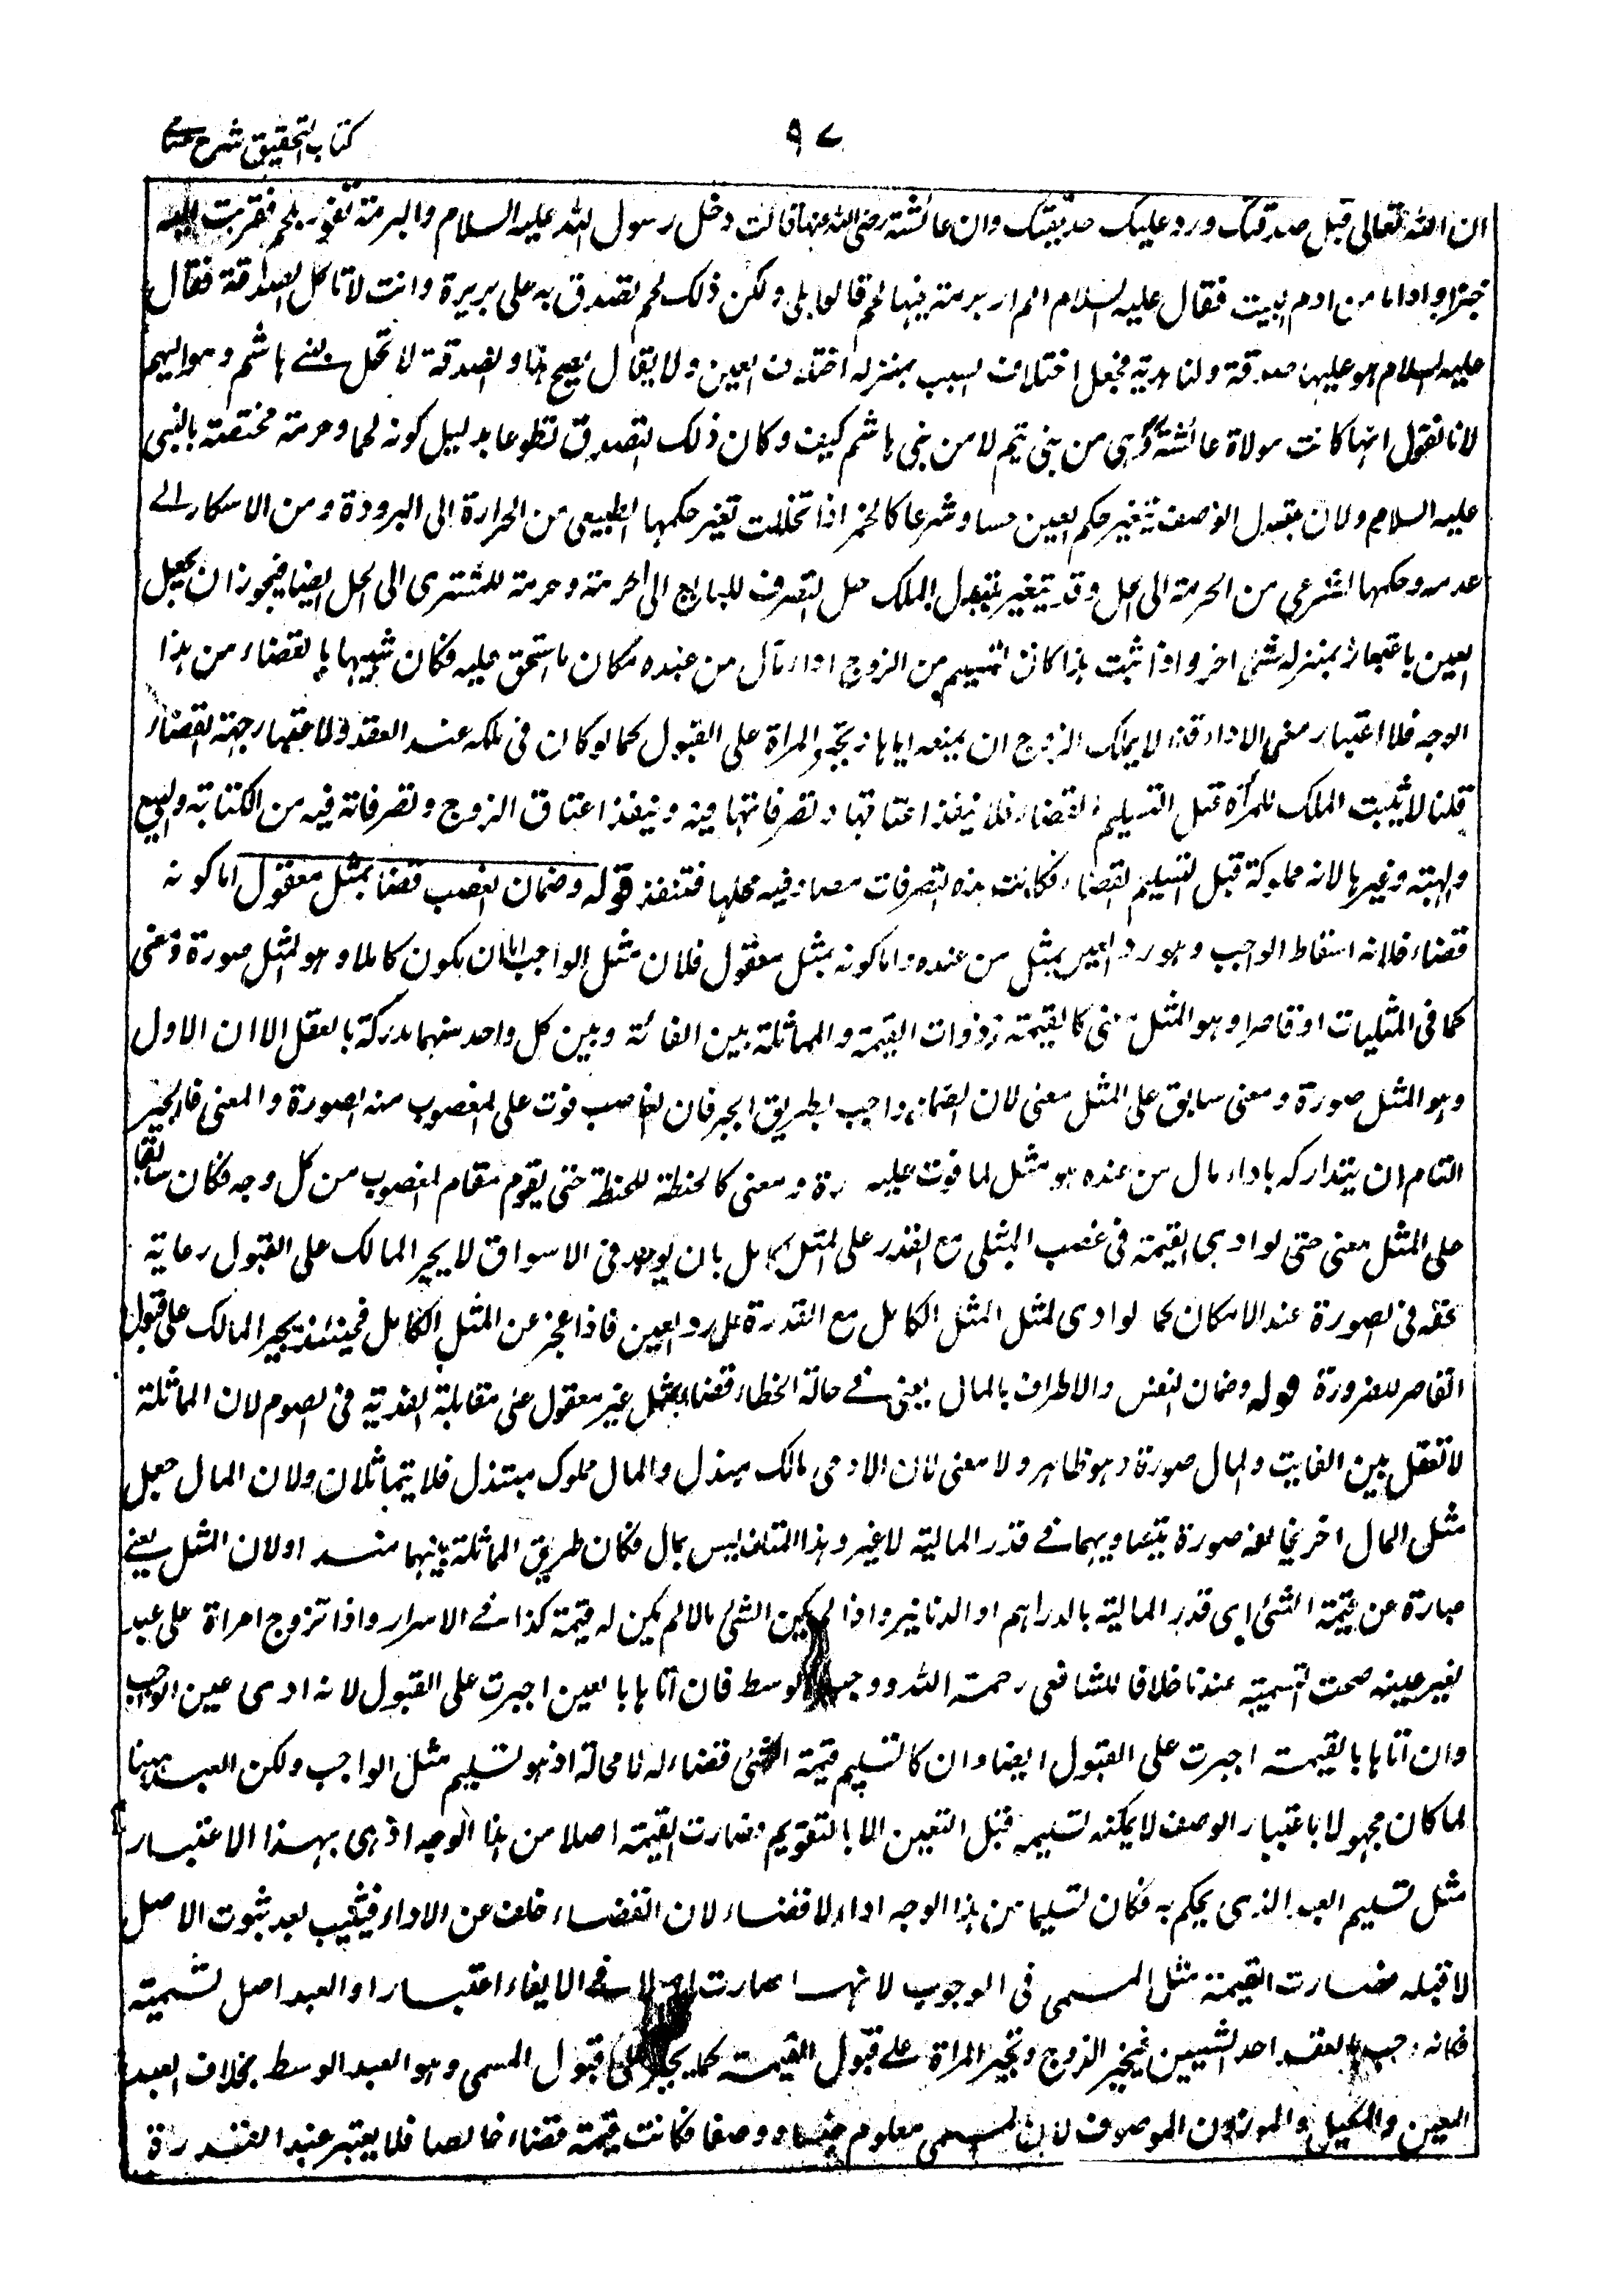 ٩٧
كتاب التحقيق شرح حسامى
ان الله تعالى قبل صدقتك ورد عليك حديقتك وان عائشة رضى الله عنها قالت دخل رسول الله عليه السلام والبرمة تفور بلحم فقربت اليه
خبزا واداما من ادم البيت فقال عليه السلام الم ار برمة فيها لحم قالوا بلى ولكن ذلك لحم تصدق به على بريرة وانت لا تاكل الصدقة فقال
عليه السلام هو عليها صدقة ولنا هدية فجعل اختلاف السبب بمنزلة اختلاف العين ولا يقال يصح هذا والصدقة لا تحل لبنى هاشم ومواليهم
لانا نقول انها كانت مولاة عائشة وهى من بنى تيم لا من بنى هاشم كيف وكان ذلك التصدق تطوعا بدليل كونه لحما وحرمته مختصة بالنبى
عليه السلام ولان بتبدل الوصف يتغير حكم العين حسا وشرعا كالخمر اذا تخللت تغير حكمها الطبيعى من الحرارة الى البرودة ومن الاسكار الى
عدمه وحكمها الشرعى من الحرمة الى الحل وقد يتغير بتبدل الملك حل التصرف للبايع الى الحرمة وحرمة للمشترى الى الحل ايضا فيجوز ان يجعل
العين باعتباره بمنزلة شئ اخر واذا ثبت هذا كان التسليم من الزوج اداء مال من عنده مكان ما استحق عليه فكان شبيها بالقضاء من هذا
الوجه فلاعتبار معنى الاداء قلنا لا يملك الزوج ان يمنعه اياها وتجبر المراة على القبول كما لو كان فى ملكه عند العقد ولاعتبار جهة القضاء
قلنا لا يثبت الملك للمرأة قبل التسليم والقضاء فلا ينفذ اعتاقها وتصرفاتها فيه وينفذ اعتاق الزوج وتصرفاته فيه من الكتابة والبيع
والهبة وغيرها لانه مملوكة قبل التسليم والقضاء فكانت هذه التصرفات مصادفة محلها فتنفذ قوله وضمان الغصب قضاء بمثل معقول اما كونه
قضاء فلانه اسقاط الواجب وهو رد العين بمثل من عنده واما كونه بمثل معقول فلان مثل الواجب اما ان يكون كاملا وهو المثل صورة ومعنى
كما فى المثليات او قاصرا وهو المثل معنى كالقيمة فى ذوات القيمة والمماثلة بين الفائتة وبين كل واحد منهما مدركة بالعقل الا ان الاول
وهو المثل صورة ومعنى سابق على المثل معنى لان الضمان واجب بطريق الجبر فان الغاصب فوت على المغصوب منه الصورة والمعنى فالجبر
التام ان يتداركه باداء مال من عنده هو مثل لما فوت عليه صورة ومعنى كالحنطة للحنطة حتى يقوم مقام المغصوب من كل وجه فكان سابقا
على المثل معنى حتى لو ادى القيمة فى غصب المثلى مع القدرة على المثل الكامل بان يوجد فى الاسواق لا يجبر المالك على القبول رعاية
لحقه فى الصورة عند الامكان كما لو ادى المثل المثل الكامل مع القدرة على رد العين فاذا عجز عن المثل الكامل فحينئذ يجبر المالك على قبول
القاصر للضرورة قوله وضمان النفس والاطراف بالمال يعنى فى حالة الخطاء قضاء بمثل غير معقول على مقابلة الفدية فى الصوم لان المماثلة
لا تعقل بين الفايت والمال صورة وهو ظاهر ولا معنى لان الادمى مالك مبتذل والمال مملوك مبتذل فلا يتماثلان ولان المال جعل
مثل المال اخر يخالفه صورة بتساويهما فى قدر المالية لا غير وهذا المتلف ليس بمال فكان طريق المماثلة بينهما منسدا ولان المثل يعنى
عبارة عن قيمة الشئ اى قدر المالية بالدراهم او الدنانير واذا لم يكن الشئ مالا لم يكن له قيمة كذا فى الاسرار واذا تزوج امراة على عبد
بغير عينه صحت التسمية عندنا خلافا للشافعى رحمه الله ووجب الوسط فان اتاها بالعين اجبرت على القبول لانه ادى عين الواجب
وان اتاها بالقيمة اجبرت على القبول ايضا وان كان تسليم قيمة الشئ قضاء له لا محالة اذ هو تسليم مثل الواجب ولكن العبد ههنا
لما كان مجهولا باعتبار الوصف لا يمكنه تسليمه قبل التعيين الا بالتقويم وصارت القيمة اصلا من هذا الوجه اذ هى بهذا الاعتبار
مثل تسليم العبد الذى يحكم به فكان تسليما من هذا الوجه اداء لا قضاء لان القضاء خلف عن الاداء فيثبت بعد ثبوت الاصل
لا قبله فصارت القيمة مثل المسمى فى الوجوب لانها صارت اصلا فى الايفاء اعتبارا والعبد اصل تسمية
فكانه وجب بالعقد احد الشيئين فيخير الزوج وتجبر المراة على قبول القيمة كما يجبر على قبول المسمى وهو العبد الوسط بخلاف العبد
العين والمكيل والموزون الموصوف لان المسمى معلوم جنسا ووصفا فكانت قيمة قضاء خالصا فلا يعتبر عند القدرة